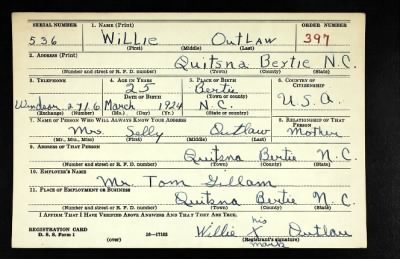 SERIAL NUMBER 1. NAME (Print) ORDER NUMBER
536 WiLLiE OutLaw 397
(First) (Middle) (Last)
2. ADDRESS (Print)
Quitsna Bertie N.C.
(Number and street or R. F. D. number) (Town) (County) (State)
3. TELEPHONE 4. AGE IN YEARS 5. PLACE OF BIRTH 6. COUNTRY OF CITIZENSHIP
25 Bertie
DATE OF BIRTH (Town or county)
Windsor 2716 March 1924 N.C. U.S.A.
(Exchange) (Number) (Mo.) (Day) (Yr.) (State or country)
7. NAME OF PERSON WHO WILL ALWAYS KNOW YOUR ADDRESS 8. RELATIONSHIP OF THAT PERSON
Mrs. Selly Outlaw Mother
(Mr., Mrs., Miss) (First) (Middle) (Last)
9. ADDRESS OF THAT PERSON
Quitsna Bertie N.C.
(Number and street or R. F. D. number) (Town) (County) (State)
10. EMPLOYER'S NAME
Mr. Tom Gillam
11. PLACE OF EMPLOYMENT OR BUSINESS
Quitsna Bertie N.C.
(Number and street or R. F. D. number) (Town) (County) (State)
I AFFIRM THAT I HAVE VERIFIED ABOVE ANSWERS AND THAT THEY ARE TRUE.
REGISTRATION CARD his
D. S. S. Form 1 (over) 16—17105 Willie X Outlaw
(Registrant's signature)
mark